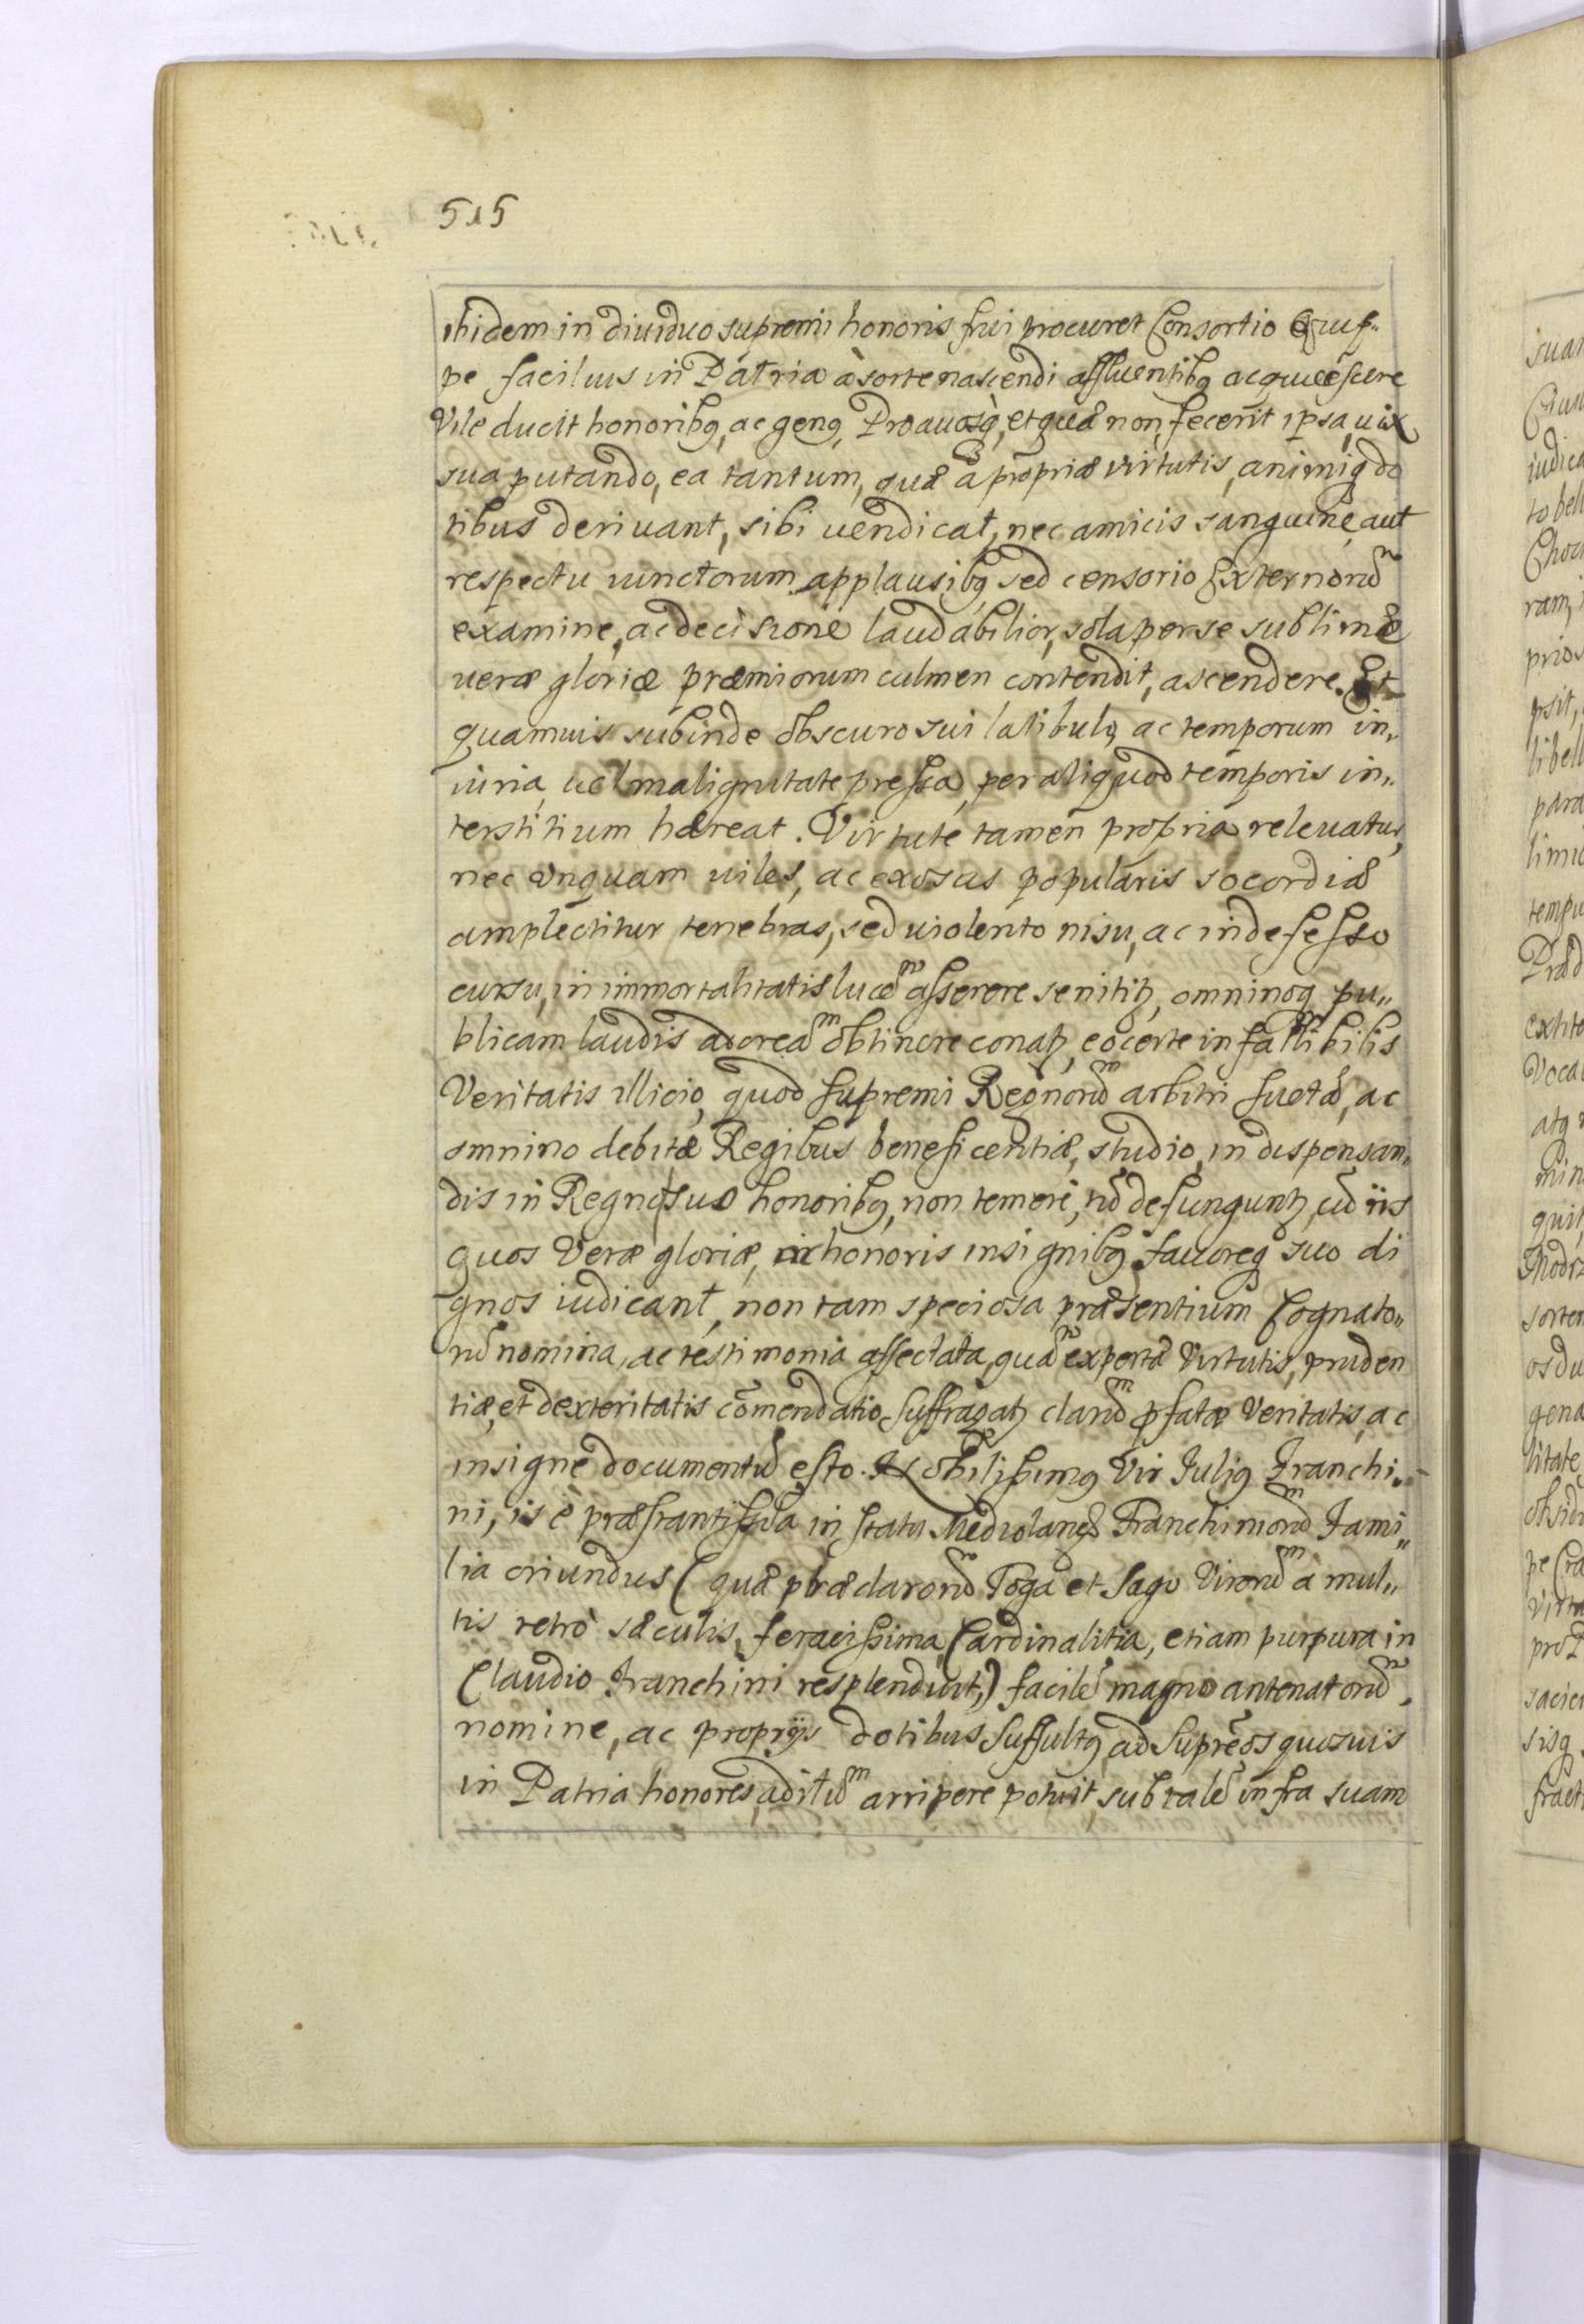 515
ibidem in diuiduo supremi honoris frui procuret Consortio Quip„
pe facilius in Patria à sorte nascendi affluentibꝫ acquiescere
Vile ducit honoribꝫ, ac genꝫ, Proauosq̀, et quæ non fecerit ipsa, uix
sua putando, ea tantum, quæ à propriæ virtutis, animiqꝫ do
tibus deriuant, sibi uendicat, nec amicis sanguine, aut
respectu iunctorum applausibꝫ sed censorio Externorũm
examine, ac decisione laudabilior, sola per se sublime
ueræ gloriæ præmiorum culmen contendit, ascendere. Et
quamuis subinde obscuro sui latibulo, ac temporum in„
iuria, uel malignitate pressa, per aliquod temporis in„
terstitium hæreat. Virtute tamen propria releuatur,
nec vnquam uiles, ac exosas popularis socordiæ
amplectitur tenebras, sed uiolento nisu, ac indefesso
cursu, in immortalitatis lucẽm asserere se nititꝫ, omninoqꝫ pu„
blicam laudis adoreãm obtinere conatꝫ, eo certe infallibilis
Veritatis illicio, quod supremi Regnorũm arbitri suetæ, ac
omnino debitæ Regibus beneficentiæ, studio, in dispensan„
dis in Regno suo honoribꝫ, non temerè, tũ defunguntꝫ, cũ iis
quos Veræ gloriæ, honoris insignibꝫ fauoreqꝫ suo di
gnos iudicant, non tam speciosa præsentium Cognato„
rũ nomina, ac testimonia affectata, quãm expertæ Virtutis, pruden
tiæ, et dexteritatis cõmendatio suffragatꝫ clarũm p̱fatæ Veritatis, ac
insigne documentũ esto. Nobilissimꝫ Vir Juliꝫ Franchi„
ni, is è præstantissĩa in statu Mediolanẽ Franchinorũm Fami„
lia oriundus (quæ præclarorũm Toga et Sago Virorũm à mul„
tis retrò sæculis, feracissima, Cardinalitia, etiam purpura in
Claudio Franchini resplenduit,) facilè magno antenatorũm,
nomine, ac proprijs dotibus suffultꝫ ad suprẽos quosuis
in Patria honores, aditũm arripere potuit, sub tale infra suam